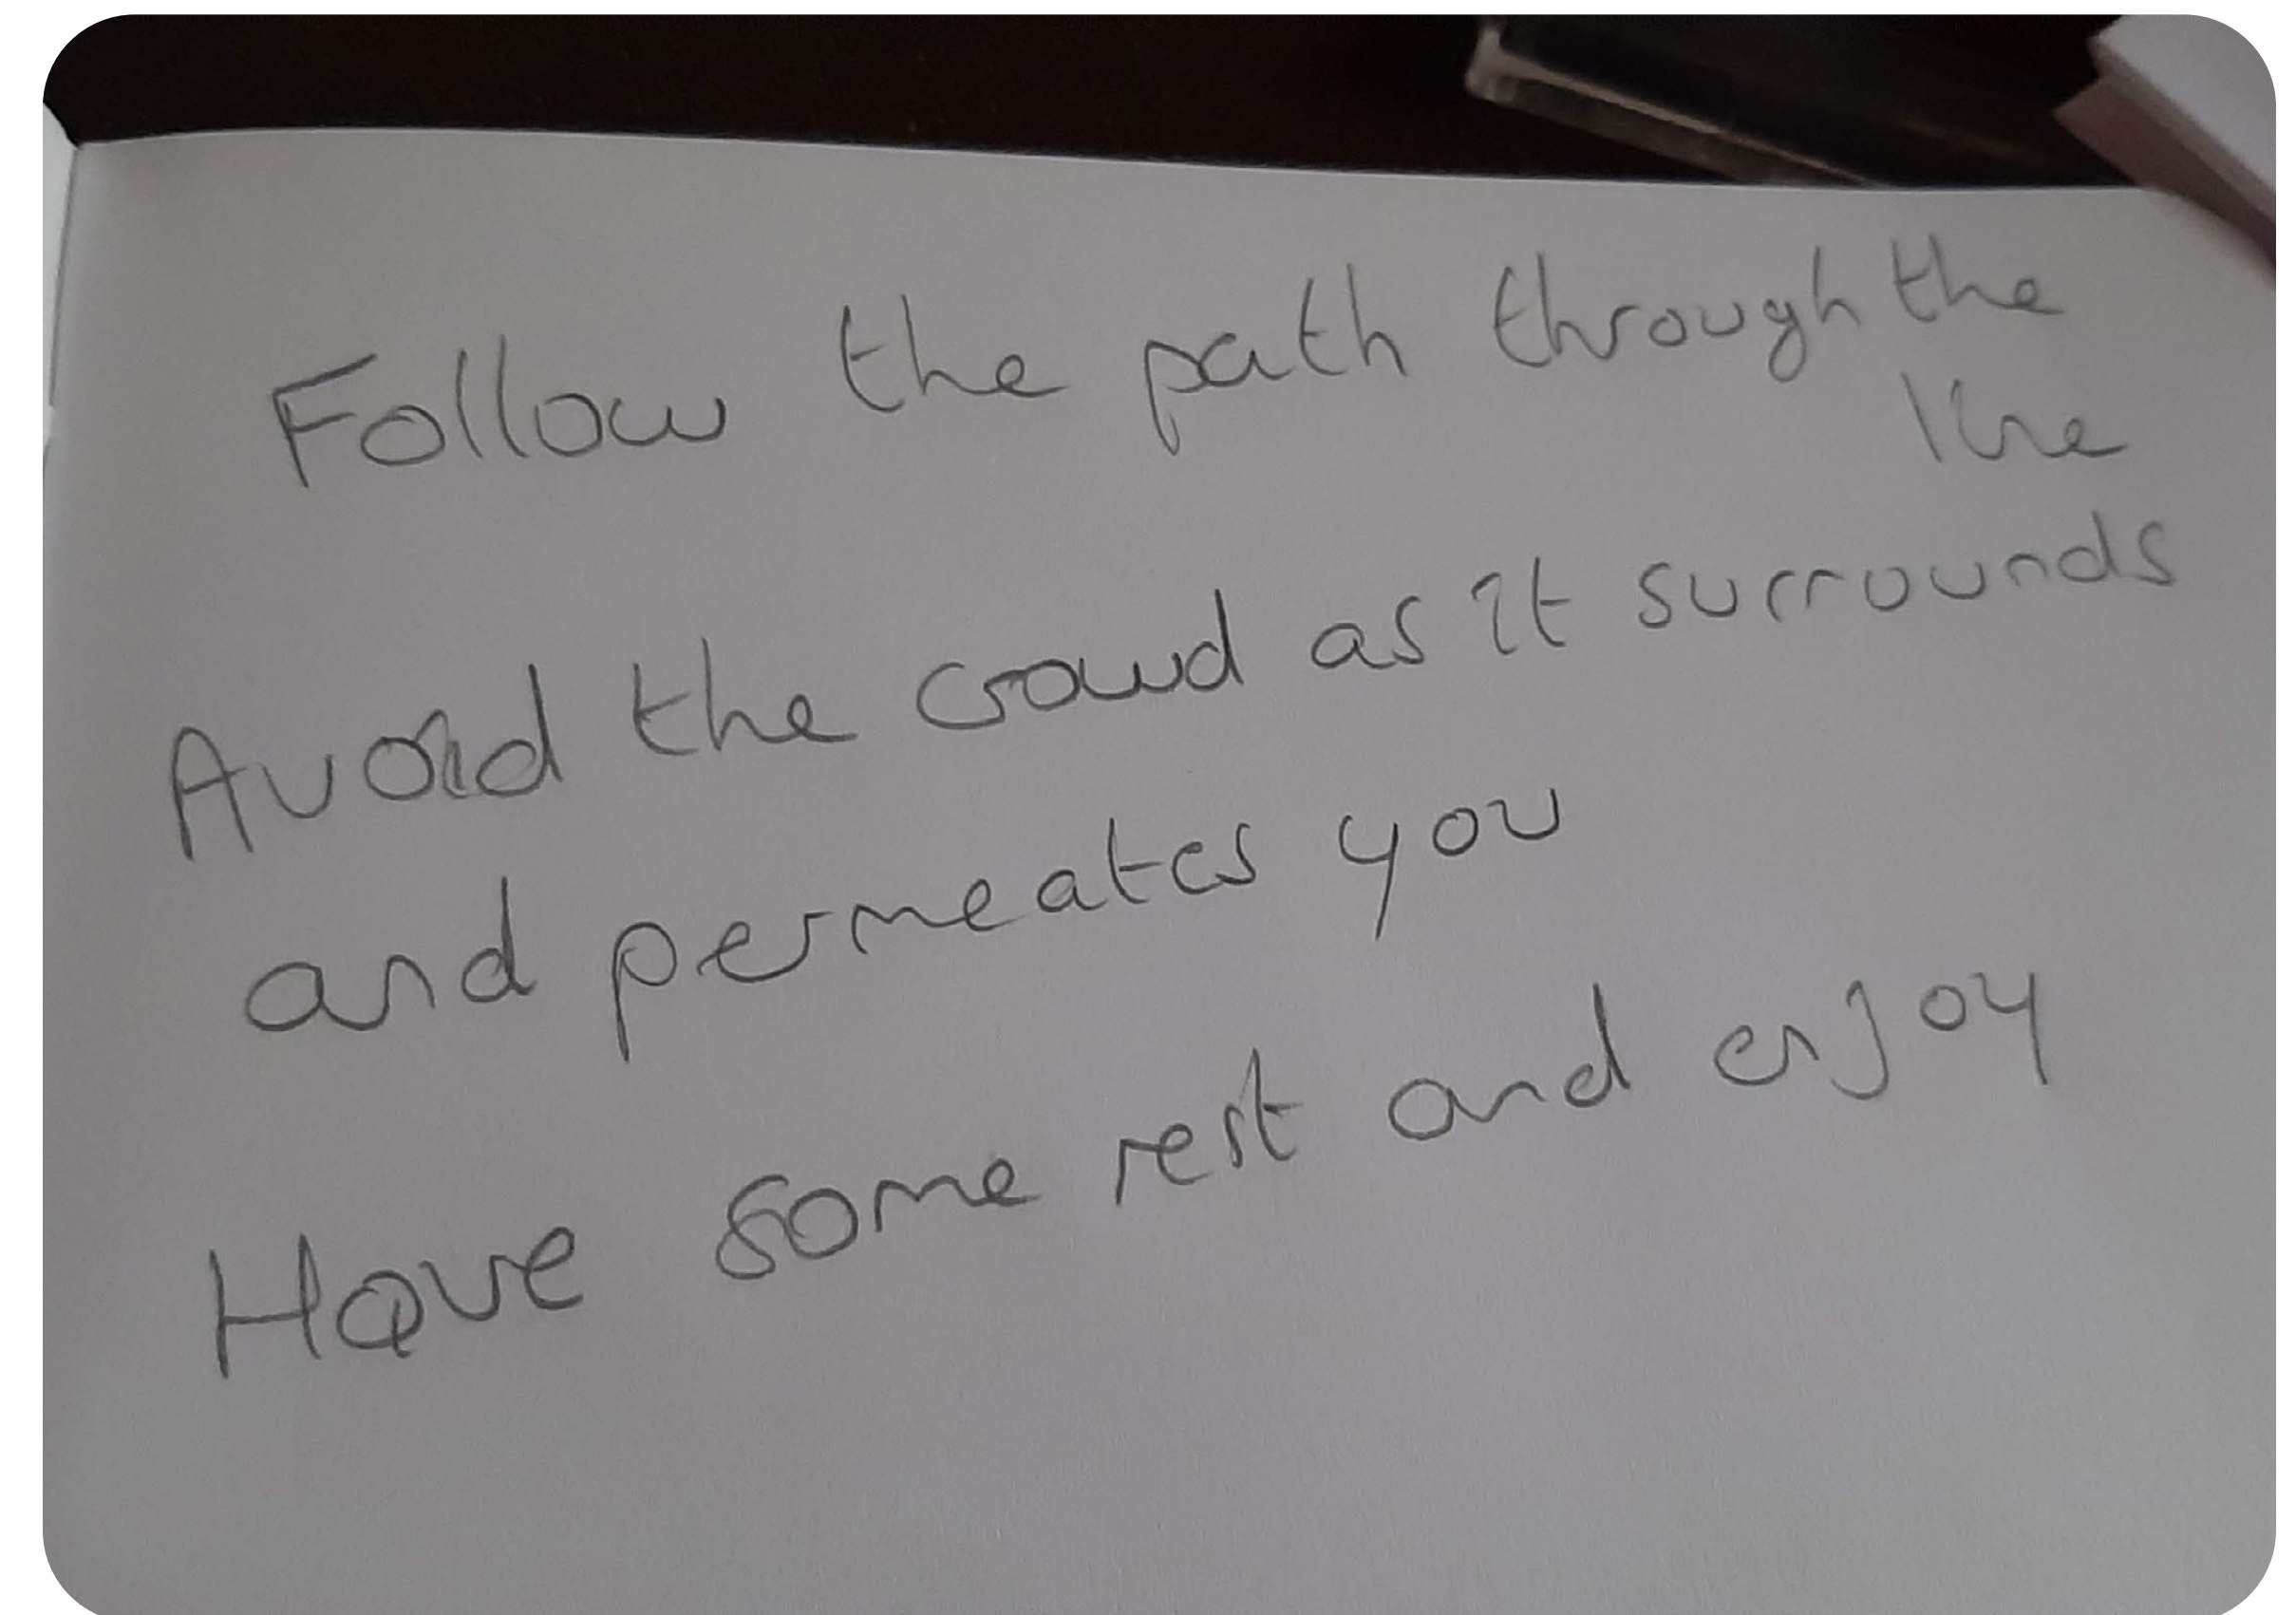 Follow the path through the
line
Avoid the crowd as it surrounds
and permeates you
Have some rest and enjoy